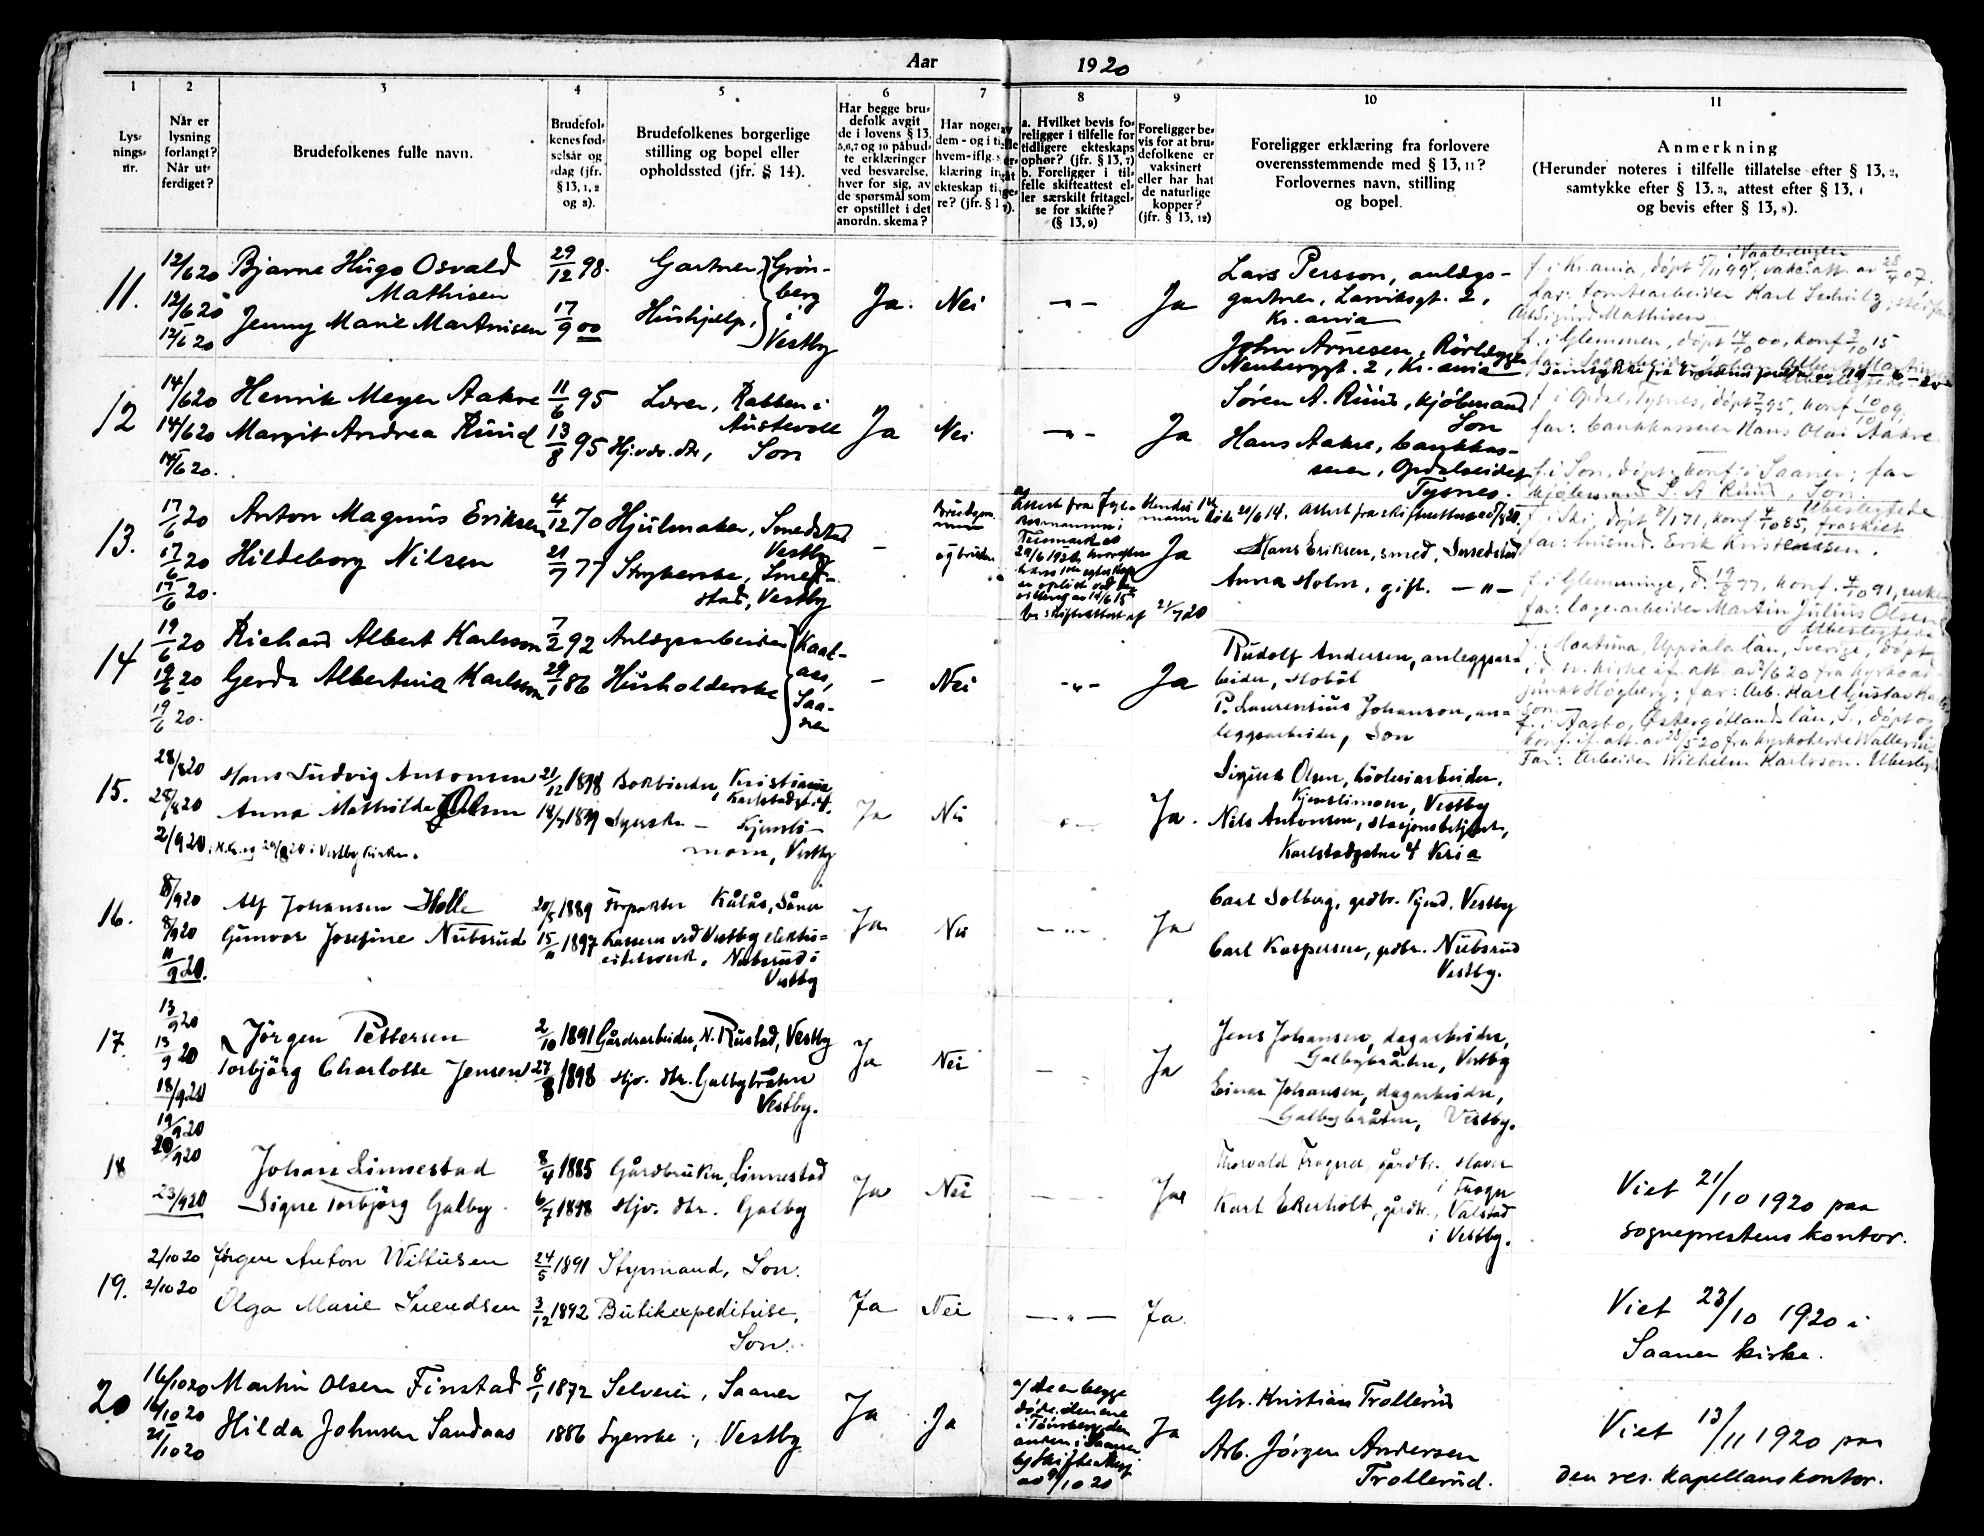 Aar 1920
1 2 3 4 5 6 7 8 9 10 11
Lys-
nings-
nr.
Når er
lysning
forlangt?
Når ut-
ferdiget?
Brudefolkenes fulle navn.
Brudefol-
kenes fød-
selsår og
-dag (jfr.
§ 13, 1, 2
og 3).
Brudefolkenes borgerlige
stilling og bopel eller
opholdssted (jfr. § 14).
Har begge bru-
defolk avgit
de i lovens § 13,
5,6,7 og 10 påbud-
te erklæringer
ved besvarelse,
hver for sig, av
de spørsmål som
er opstillet i det
anordn. skema?
Har nogen av
dem - og i tilfelle
hvem - iflg. er-
klæring inngåt
ekteskap tidlige-
re? (jfr. § 1
a. Hvilket bevis fo-
religger i tilfelle for
tidligere ekteskaps
ophør? (jfr. § 13, 7)
b. Foreligger i til-
felle skifteattest el-
ler særskilt fritagel-
se for skifte?
(§ 13, 9)
Foreligger be-
vis for at bru-
defolkene er
vaksinert
eller har hat
de naturlige
kopper?
(jfr. § 13, 12)
Foreligger erklæring fra forlovere
overensstemmende med § 13, 11?
Forlovernes navn, stilling
og bopel.
Anmerkning
(Herunder noteres i tilfelle tillatelse efter § 13, 2,
samtykke efter § 13, 3, attest efter § 13, 4
og bevis efter § 13, 8).
11.
12/6 20
12/6 20
12/6 20
Bjarne Hugo Osvald
Mathisen
Jenny Marie Martinisen
29/12 98.
17/9 00
Gartner,
Hushjelp,
Grön-
berg
i
Vestby
Ja.
Nei
- " -
Ja
Lars Persson, anlægs-
gartner, Larviksgt. 2,
Kr.ania
John Arnesen, Rörlægger
Neubergsgt. 2, Kr.ania
f. i Kr.ania, döpt
far: tomtearbeider Karl Schultz,
Sigurd Mathisen
f. i Glemmen, döpt 14/10 00, konf. 3/10 15
12
14/6 20
14/6 20
14/6 20.
Henrik Meyer Aakre
Margit Andrea Ruud
11/6 95
13/8 95
Lærer, Rabben i
Austevoll
Hj.vær. dtr., Son
Ja
Nei
- " -
Ja
Søren A. Ruud, kjöbmand
Son
Hans Aakre, bankkas-
serer, Opdalseidet
Tysnes.
f. i Opdal, Tysnes, döpt 7/7 95, konf. 10/10 09,
far: bankkasserer Hans Olai Aakre
f. i Son, döpt, konf. i Saaner; far
kjöbmand S. A. Ruud, Son.
Ubeslegtede
13.
17/6 20
17/6 20
17/6 20.
Anton Magnus Eriksen
Hildeborg Nilsen
4/12 70
21/7 77
Hjulmaker, Smedstad
Vestby
Strykerske, Smed-
stad, Vestby
-
og bruden
Ja
Hans Eriksen, smed, Smedstad
Anna Holm, gift. - " -
f. i Ski, döpt 2/1 71, konf. 4/10 85, fraskilt
far: husmd. Erik Kristensen.
f. i Glemminge, d. 19/8 77, konf. 4/10 91, enke
far: lagerarbeider Martin Julius Olsen
Ubeslegtede
14
19/6 20
19/6 20
19/6 20.
Richard Albert Karlsson
Gerda Albertina Karlsson
7/2 92
29/1 86
Anlægsarbeider
Husholderske
Kaal-
aas,
Saa-
ner
-
Nei
- " -
Ja
Rudolf Andersen, anleggsar-
beider, Hobøl
P. Laurentius Johanson, an-
leggsarbeider, Son
Uppsala län, Sverige, döpt
Högberg; far: Arb. Karl Gustav Karls
son.
Östergötlands län, S., döpt og
konf. if. att. av 28/5 20 fra kyrkoherde Wallerius
Far: Arbeider Wilhelm Karlsson. Ubeslegt
15.
28/8 20
28/8 20
2/9 20
Hans Ludvig Antonsen
Anna Mathilde Olsen
29/8 20 i Vestby kirke.
21/12 1898
18/7 1899
Bokbinder, Kristiania
Karlstadgt.
Syerske - Kjensli-
mom, Vestby
Ja
Nei
- " -
Ja.
Sigurd Olsen,
Kjenslimom, Vestby
Nils Antonsen, stasjonsbetjent,
Karlstadgaten 4 Kr.ia
16.
8/9 20
8/9 20
11/9 20.
Alf Johansen Holle
Gunvor Josefine Nubsrud
20/5 1889
15/11 1897
Forpakter Kålås, Såner
Kasserer ved Vestby elektri-
citetsverk. Nubsrud i
Vestby
Ja
Nei
- " -
Ja
Carl Solberg, grdbr. Kjend, Vestby
Carl Kaspersen, grdbr. Nubsrud
Vestby.
17.
13/9 20
13/9 20
18/9 20
Jörgen Pettersen
Torbjörg Charlotte Jensen
2/10 1891
27/8 1898
Gårdsarbeider, N. Rustad, Vestby
Hjv. dtr. Galbybråten
Vestby.
Ja
Nei
Ja
Jens Johansen, dagarbeider,
Galbybråten, Vestby
Einar Johansen, dagarbeider,
Galbybråten, Vestby.
18
19/9 20
20/9 20
23/9 20
Johan Linnestad
Signe Torbjörg Galby
8/4 1885
6/7 1898
Gårdbruker, Linnestad
Hjv. dtr. Galby
Ja
Nei
Ja
Thorvald Frogner, gårdbr., Haver
i Frogn
Karl Ekerholt, gårdbr., Valstad
i Vestby.
Viet 21/10 1920 paa
sogneprestens kontor.
19.
2/10 20
2/10 20
Jørgen Anton Wittusen
Olga Marie Svendsen
24/5 1891
3/12 1892
Styrmand, Son.
Butikexpeditrise,
Son.
Ja
Nei
- " -
Ja.
Viet 23/10 1920 i
Saaner kirke.
20
16/10 20
16/10 20
21/10 20
Martin Olsen Finstad
Hilda Johnsen Sandaas
8/1 1872
1886
Selveier, Saaner
Syerske, Vestby
Ja
Ja
a/ De er begge
døde, den ene
i Tönsberg, den
anden i Saaner
b/ Skifteattest
av 9/10 20
Ja
Gbr. Kristian Trollerud
Arb. Jörgen Andersen
Trollerud.
Viet 13/11 1920 paa
den res. kapellans kontor.